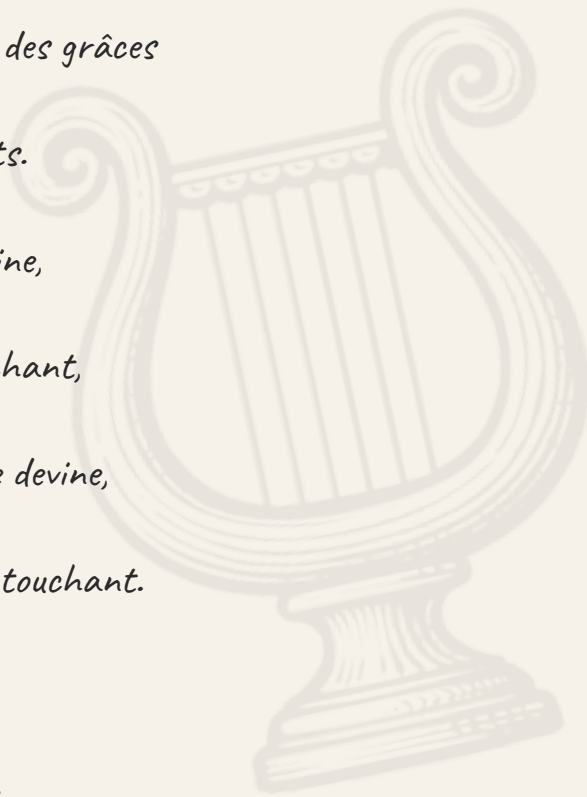 des grâces
ts.
ine,
hant,
e devine,
touchant.